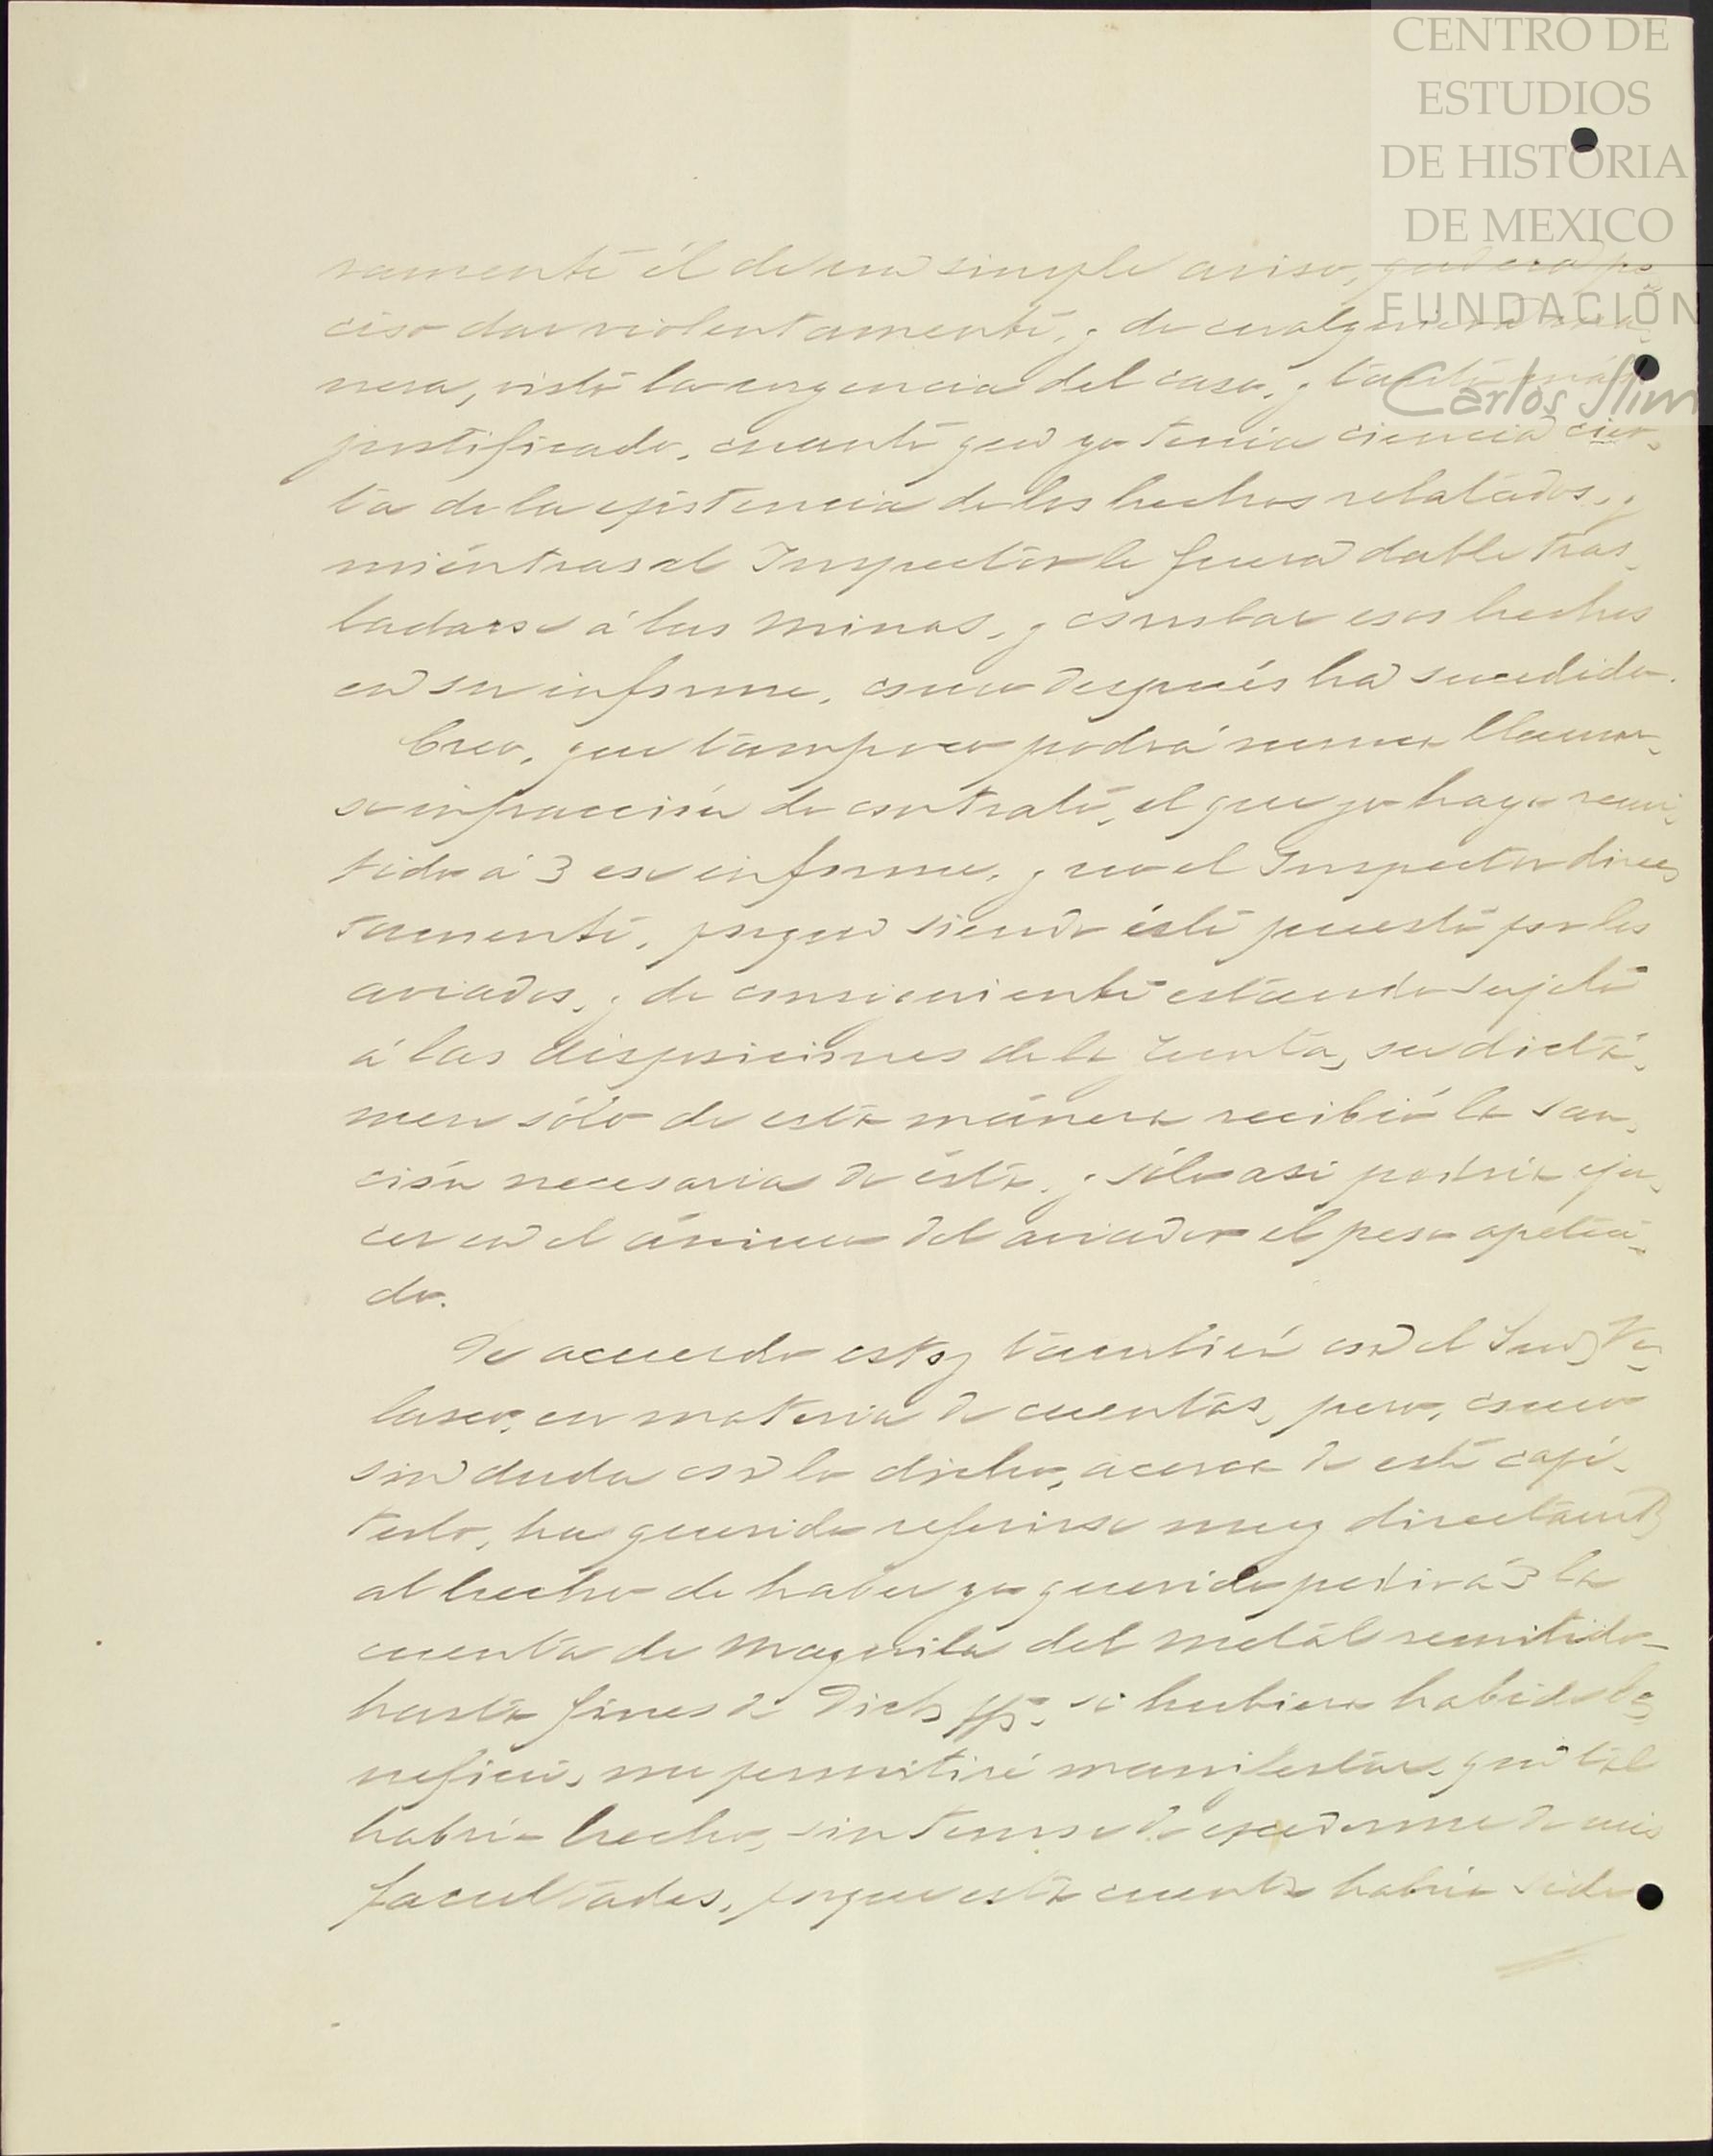 CENTRO DE
ESTUDIOS
DE HISTORIA
DE MEXICO
FUNDACIÓN
Carlos Slim
ramente él de un simple aviso, que era pre-
ciso dar violentamente, y de cualquiera ma-
nera, visto la urgencia del caso, y tanto más
justificado, cuanto que yo tenia ciencia cier-
ta de la existencia de los hechos relatados, y
miéntras al Inspector le fuera dable tras-
ladarse á las minas, y consultar esos hechos
en su informe, como después ha sucedido.
Creo, que tampoco podrá nunca llamar-
se infracción de contrato, el que yo haya remi-
tido á 3 ese informe, y no el Inspector direc-
tamente, porque siendo éste puesto por los
aviados, y de consiguiente estando sujeto
á las disposiciones de la Junta, su dictá-
men sólo de esta manera recibió la san-
ción necesaria de ésta, y sólo asi podria ejer-
cer en el ánimo del aviador el peso apeteci-
do.
De acuerdo estoy también con el Sr.
en materia de cuentas, pero, como
sin duda con lo dicho, acerca de este capí-
tulo, ha querido referirse muy directamte
al hecho de haber yo querido pedir á 3 la
cuenta de maquila del metál remitido
hasta fines de Dicbre ppo. si hubiera habido be-
neficio, me permitiré manifestar, que tal
habria hecho, sin temor de excederme de mis
facultades, porque esta cuenta habria sido